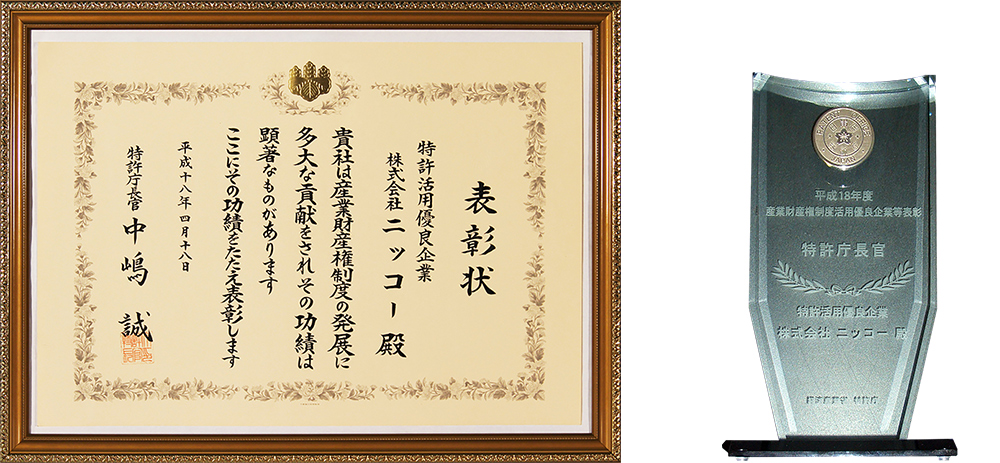 表彰状
特許活用優良企業
株式会社ニッコー殿
貴社は産業財産権制度の発展に
多大な貢献をされその功績は
顕著なものがあります
ここにその功績をたたえ表彰します
平成十八年四月十八日
特許庁長官 中嶋 誠
PATENT OFFICE
JAPAN
平成18年度
産業財産権制度活用優良企業等表彰
特許庁長官
特許活用優良企業
株式会社 ニッコー 殿
経済産業省 特許庁